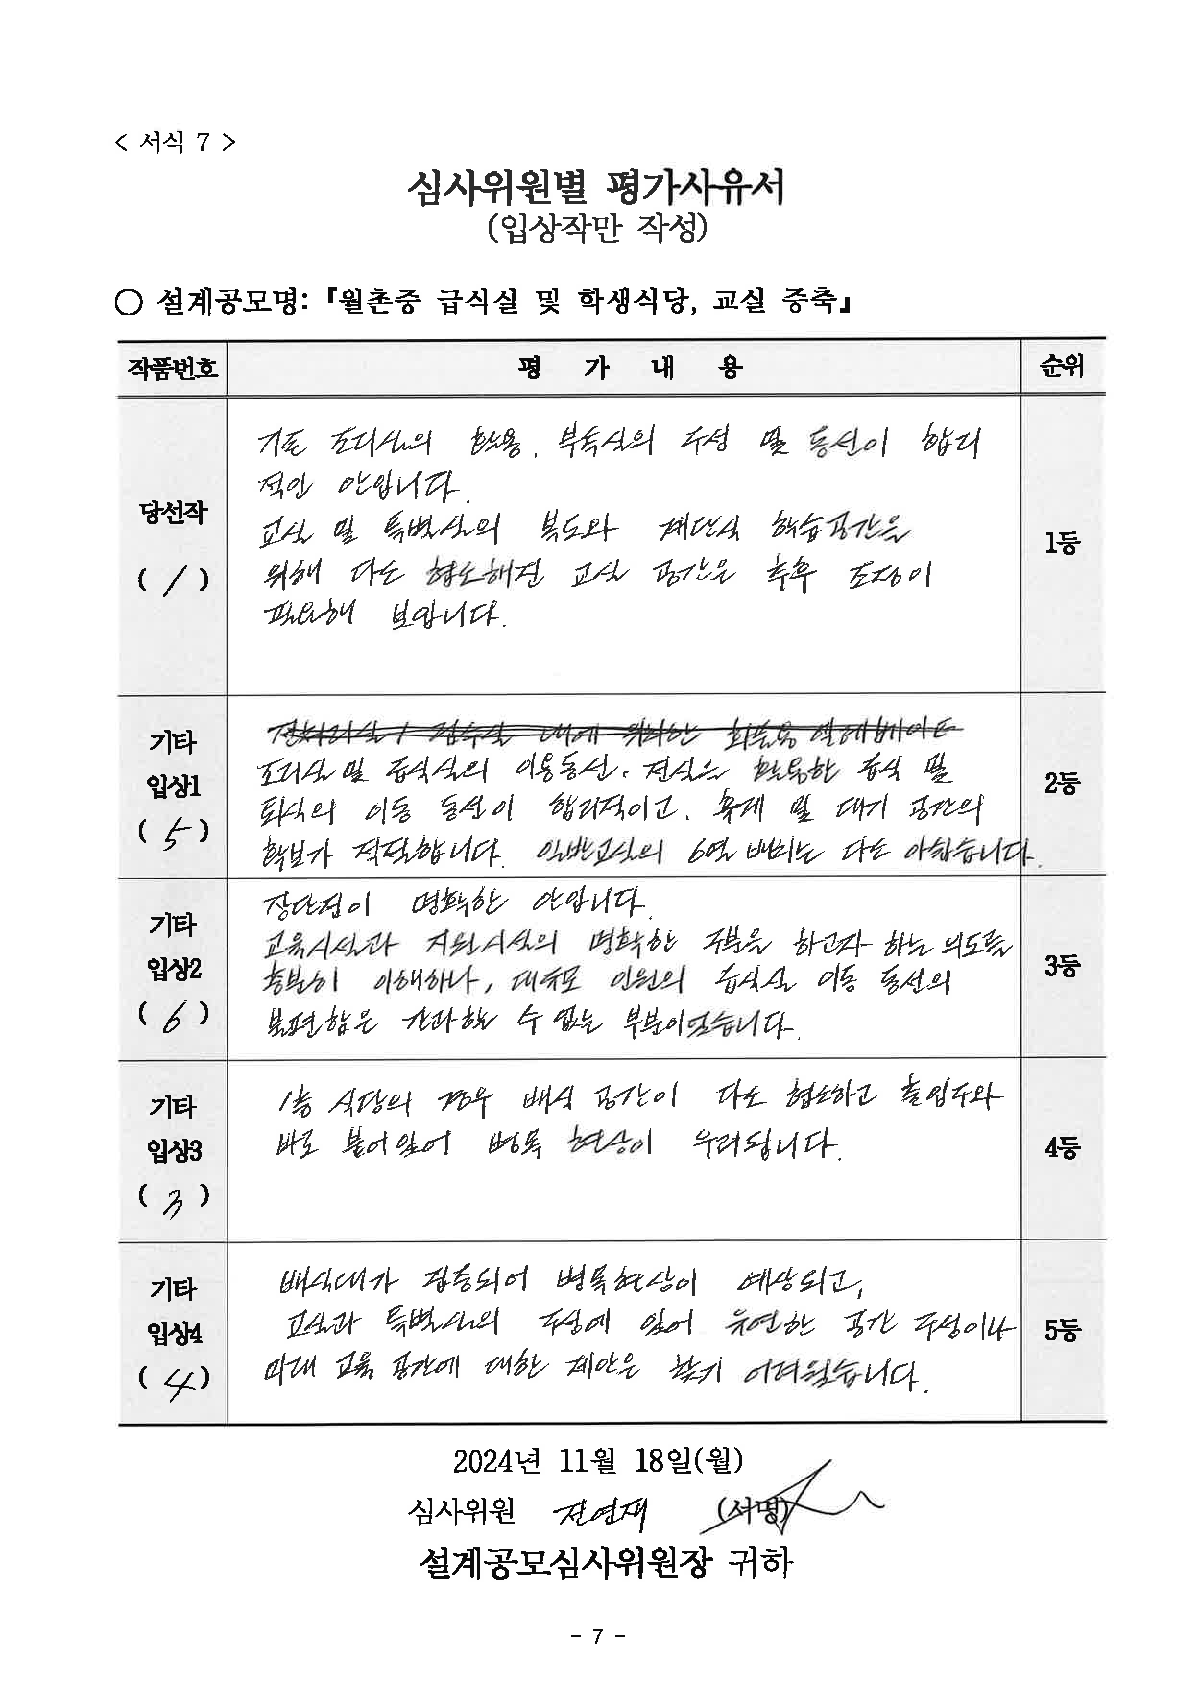 < 서식 7 >
심사위원별 평가사유서
(입상작만 작성)
○ 설계공모명:『월촌중 급식실 및 학생식당, 교실 증축』
작품번호 평 가 내 용 순위
당선작
( 1 )
기존 조리실의 활용, 부속실의 구성 및 동선이 합리
적인 안입니다.
교실 및 특별실의 복도와 계단식 학습공간을
위해 다소 협소해진 교실 공간은 추후 조정이
필요해 보입니다.
1등
기타
입상1
( 5 )
전처리실 / 검수실 내에 위치한 화물용 엘레베이터
조리실 및 급식실의 이동동선, 전실을 활용한 급식 및
퇴식의 이동 동선이 합리적이고, 휴게 및 대기 공간의
확보가 적절합니다. 일반교실의 6열 배치는 다소 아쉽습니다.
2등
기타
입상2
( 6 )
장단점이 명확한 안입니다.
교육시설과 지원시설의 명확한 구분을 하고자 하는 의도는
충분히 이해하나, 대규모 인원의 급식실 이동 동선의
불편함은 간과할 수 없는 부분이었습니다.
3등
기타
입상3
( 3 )
1층 식당의 경우 배식 공간이 다소 협소하고 출입구와
바로 붙어있어 병목 현상이 우려됩니다.
4등
기타
입상4
( 4 )
배식대가 집중되어 병목현상이 예상되고,
교실과 특별실의 구성에 있어 유연한 공간 구성이나
미래 교육 공간에 대한 제안은 찾기 어려웠습니다.
5등
2024년 11월 18일(월)
심사위원 전연재 (서명)
설계공모심사위원장 귀하
- 7 -